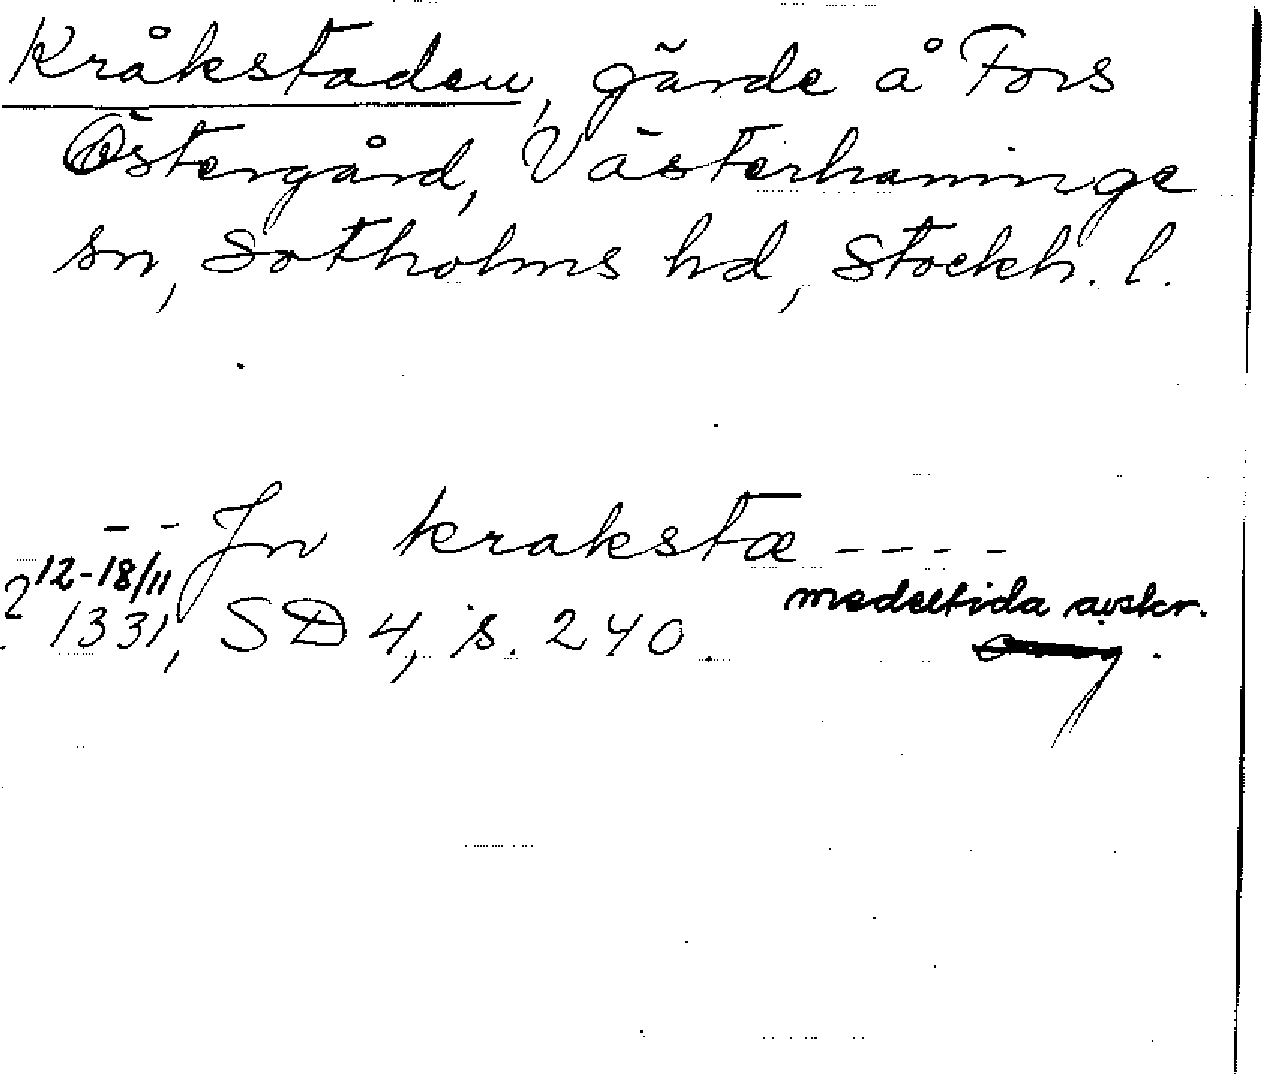 Kråkstaden, gärde å Fors
Östergård, Västerhaninge
sn, Sotholms hd, Stockh. l.
-- Jn krakstæ ----
12-18/11 medeltida avskr.
1331, SD 4, s. 240.